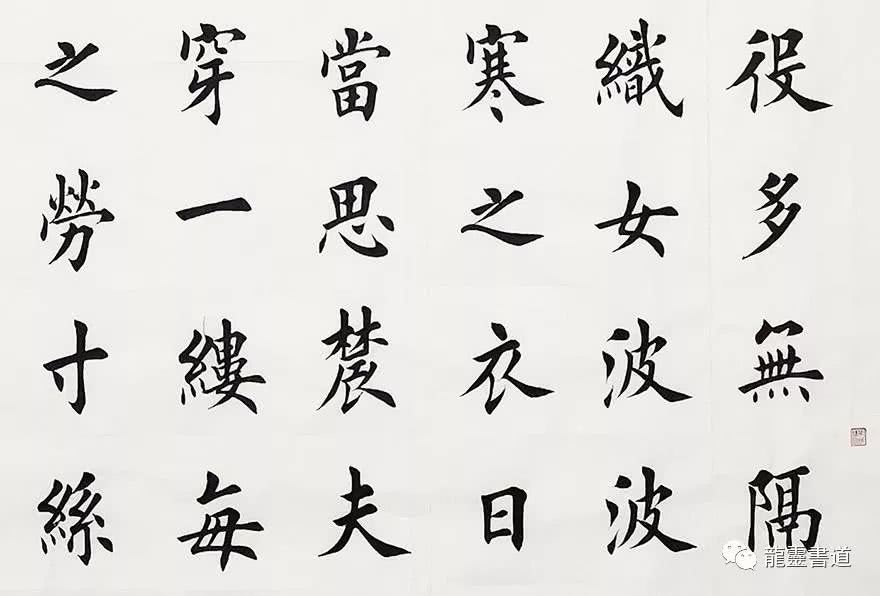 役多無隔
織女波波
寒之衣日
當思辳夫
穿一縷每
之勞寸絲
龍靈書道